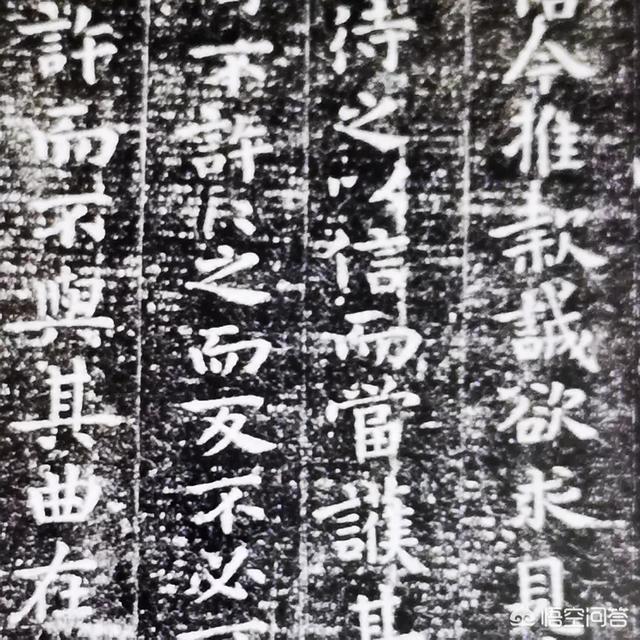 今推款誠欲求見
待之以信而當護其
不許〻之而反不必
許而不與其曲在
悟空问答